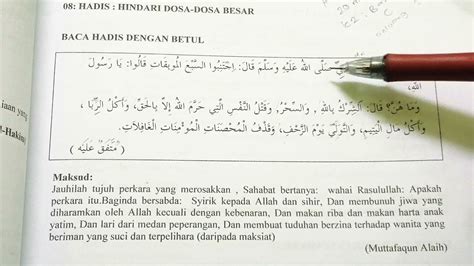 08: HADIS : HINDARI DOSA-DOSA BESAR
BACA HADIS DENGAN BETUL
صَلَّى اللهُ عَلَيْهِ وَسَلَّمَ قَالَ: اِجْتَنِبُوا السَّبْعَ الْمُوبِقَاتِ قَالُوا: يَا رَسُولَ
اللهِ،
وَمَا هُنَّ؟ قَالَ: اَلشِّرْكُ بِاللهِ , وَالسِّحْرُ, وَقَتْلُ النَّفْسِ الَّتِي حَرَّمَ اللهُ إِلاَّ بِالْحَقِّ، وَأَكْلُ الرِّبَا ،
وَأَكْلُ مَالِ الْيَتِيمِ، وَالتَّوَلِّي يَوْمَ الزَّحْفِ، وَقَذْفُ الْمُحْصَنَاتِ الْمُؤْمِنَاتِ الْغَافِلَاتِ.
( مُتَّفَقٌ عَلَيْهِ )
Maksud:
Jauhilah tujuh perkara yang merosakkan , Sahabat bertanya: wahai Rasulullah: Apakah
perkara itu.Baginda bersabda: Syirik kepada Allah dan sihir, Dan membunuh jiwa yang
diharamkan oleh Allah kecuali dengan kebenaran, Dan makan riba dan makan harta anak
yatim, Dan lari dari medan peperangan, Dan membuat tuduhan berzina terhadap wanita yang
beriman yang suci dan terpelihara (daripada maksiat)
(Muttafaqun Alaih)